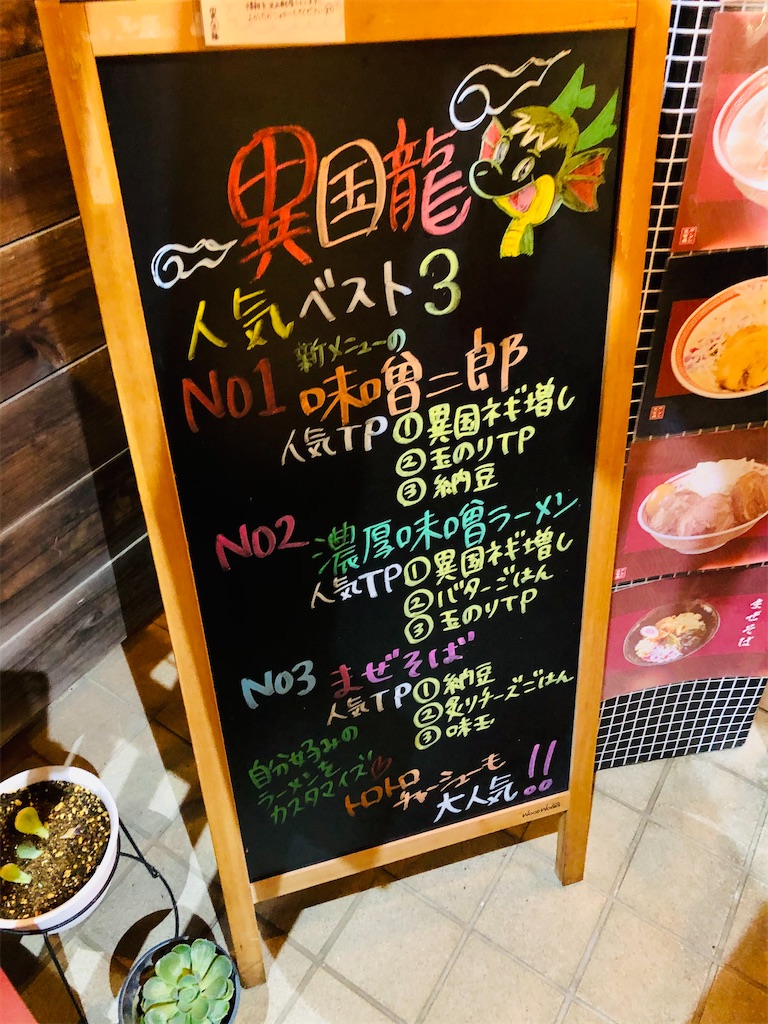 異国龍
人気ベスト3
No1 新メニューの
味噌二郎
人気TP ①異国ネギ増し
②玉のりTP
③納豆
No2 濃厚味噌ラーメン
人気TP ①異国ネギ増し
②バターごはん
③玉のりTP
No3 まぜそば
人気TP ①納豆
②炙りチーズごはん
③味玉
自分好みの
ラーメンを
カスタマイズ♡
トロトロ
チャーシューも
大人気!!
まぜそば